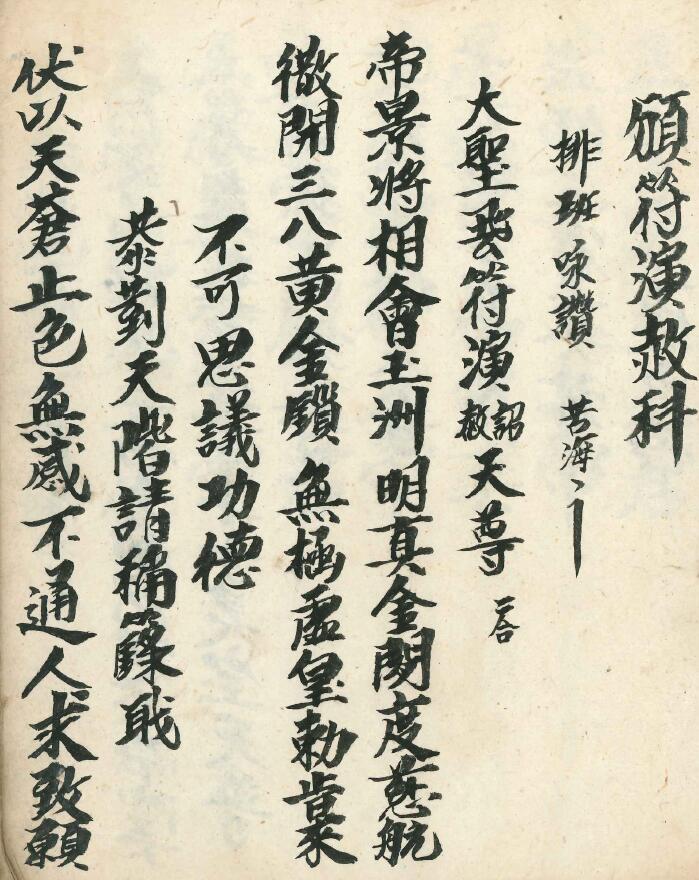 頒符演赦科
排班咏讚 苦海〻丨
大聖頒符演詔赦天尊 二合
帝景將相會玉洲明真金閣度慈航
徹開三八黃金鎖無極虛皇勅旨來
不可思議功德
恭對天階請稱籙職
伏以天蒼正色無感不通人求致願